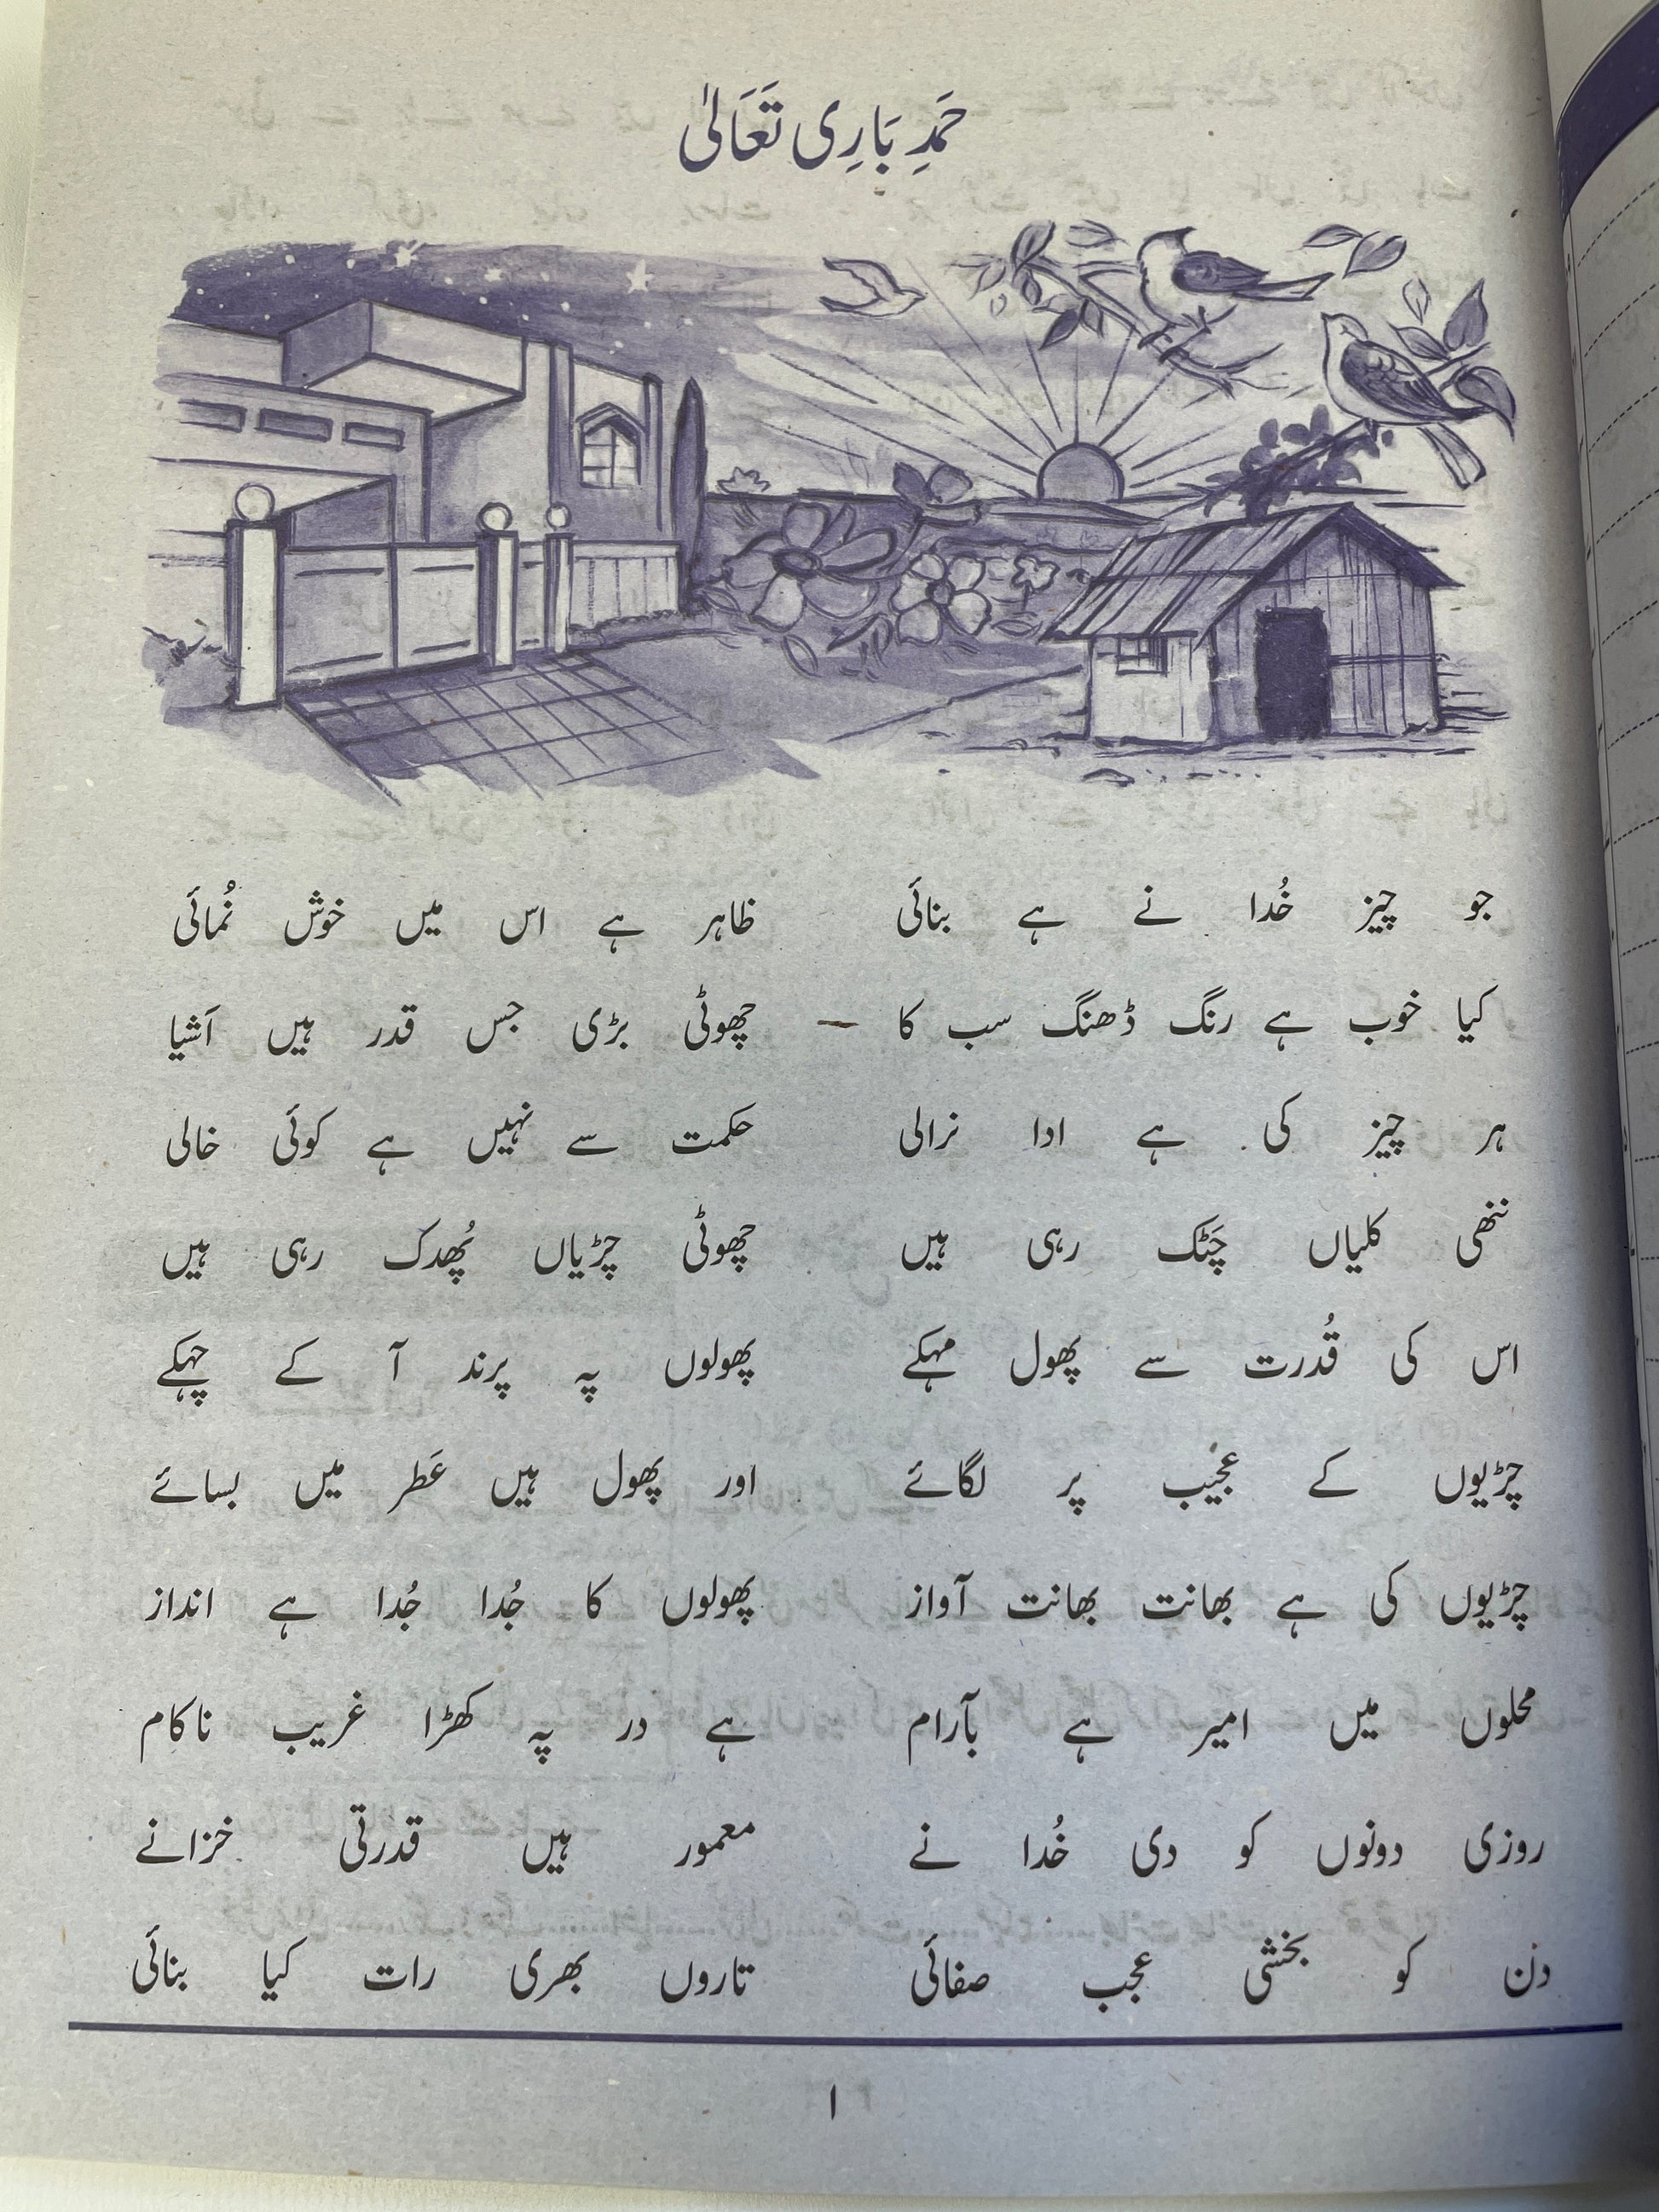 حَمدِ بَارِی تَعَالٰی
جو چیز خُدا نے ہے بنائی ظاہر ہے اس میں خوش نُمائی
کیا خوب ہے رنگ ڈھنگ سب کا چھوٹی بڑی جس قدر ہیں اَشیا
ہر چیز کی ہے ادا نرالی حکمت سے نہیں ہے کوئی خالی
ننھی کلیاں چَٹک رہی ہیں چھوٹی چڑیاں پُھدک رہی ہیں
اس کی قُدرت سے پھول مہکے پھولوں پہ پرند آ کے چہکے
چڑیوں کے عجیب پر لگائے اور پھول ہیں عَطر میں بسائے
چڑیوں کی ہے بھانت بھانت آواز پھولوں کا جُدا جُدا ہے انداز
محلوں میں امیر ہے بآرام ہے در پہ کھڑا غریب ناکام
روزی دونوں کو دی خُدا نے معمور ہیں قدرتی خزانے
دن کو بخشی عجب صفائی تاروں بھری رات کیا بنائی
۱